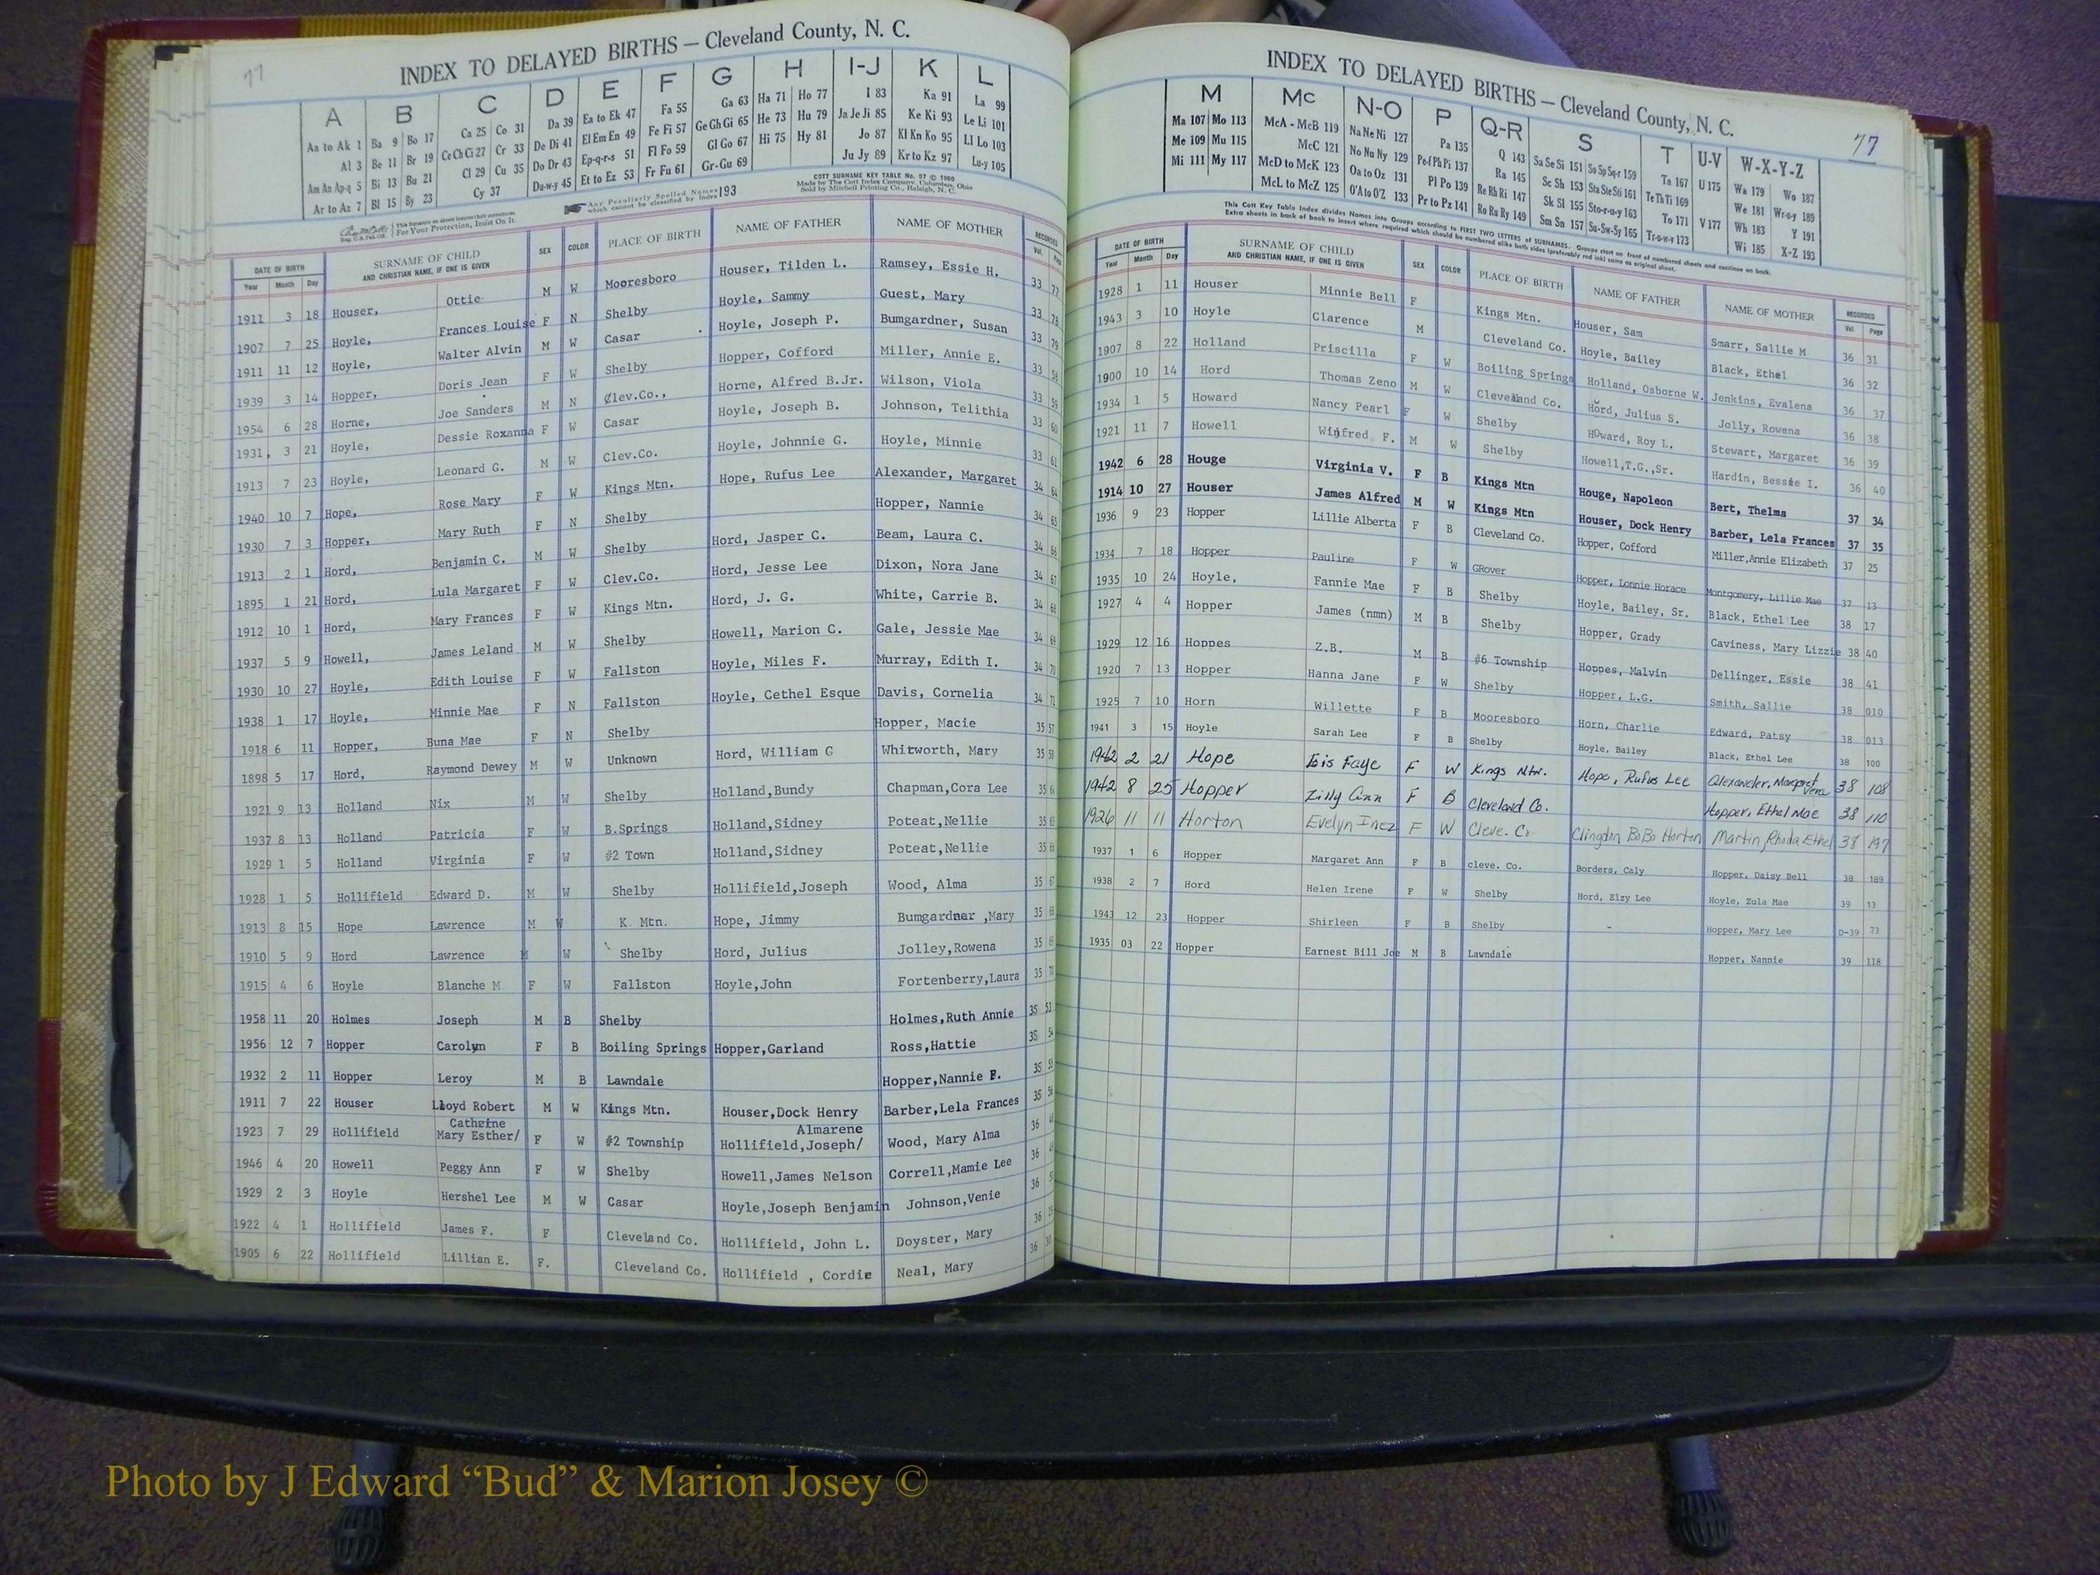 77
INDEX TO DELAYED BIRTHS — Cleveland County, N. C.
A B C D E F G H I-J K L
Aa to Ak 1 Ba 9 Bo 17 Ca 25 Co 31 Da 39 Ea to Ek 47 Fa 55 Ga 63 Ha 71 Ho 77 I 83 Ka 91 La 99
Al 3 Be 11 Br 19 Ce Ch Ci 27 Cr 33 De Di 41 El Em En 49 Fe Fi 57 Ge Gh Gi 65 He 73 Hu 79 Ja Je Ji 85 Ke Ki 93 Le Li 101
Am An Ap-q 5 Bi 13 Bu 21 Cl 29 Cu 35 Do Dr 43 Ep-q-r-s 51 Fl Fo 59 Gl Go 67 Hi 75 Hy 81 Jo 87 Kl Kn Ko 95 Ll Lo 103
Ar to Az 7 Bl 15 By 23 Cy 37 Du-w-y 45 Et to Ez 53 Fr Fu 61 Gr-Gu 69 Ju Jy 89 Kr to Kz 97 Lu-y 105
For Your Protection, Insist On It.
Any Peculiarly Spelled Names which cannot be classified by Index 193
COTT SURNAME KEY TABLE No. 97 © 1960
Made by The Cott Index Company, Columbus, Ohio
Sold by Mitchell Printing Co., Raleigh, N. C.
DATE OF BIRTH Year Month Day SURNAME OF CHILD AND CHRISTIAN NAME, IF ONE IS GIVEN SEX COLOR PLACE OF BIRTH NAME OF FATHER NAME OF MOTHER RECORDED Vol. Page
1911 3 18 Houser, Ottie M W Mooresboro Houser, Tilden L. Ramsey, Essie H. 33 77
1907 7 25 Hoyle, Frances Louise F N Shelby Hoyle, Sammy Guest, Mary 33 78
1911 11 12 Hoyle, Walter Alvin M W Casar Hoyle, Joseph P. Bumgardner, Susan 33 79
1939 3 14 Hopper, Doris Jean F W Shelby Hopper, Cofford Miller, Annie E. 33 58
1954 6 28 Horne, Joe Sanders M N Clev.Co., Horne, Alfred B.Jr. Wilson, Viola 33 59
1931, 3 21 Hoyle, Dessie Roxanna F W Casar Hoyle, Joseph B. Johnson, Telithia 33 60
1913 7 23 Hoyle, Leonard G. M W Clev.Co. Hoyle, Johnnie G. Hoyle, Minnie 33 61
1940 10 7 Hope, Rose Mary F W Kings Mtn. Hope, Rufus Lee Alexander, Margaret 34 64
1930 7 3 Hopper, Mary Ruth F N Shelby Hopper, Nannie 34 65
1913 2 1 Hord, Benjamin C. M W Shelby Hord, Jasper C. Beam, Laura C. 34 66
1895 1 21 Hord, Lula Margaret F W Clev.Co. Hord, Jesse Lee Dixon, Nora Jane 34 67
1912 10 1 Hord, Mary Frances F W Kings Mtn. Hord, J. G. White, Carrie B. 34 68
1937 5 9 Howell, James Leland M W Shelby Howell, Marion C. Gale, Jessie Mae 34 69
1930 10 27 Hoyle, Edith Louise F W Fallston Hoyle, Miles F. Murray, Edith I. 34 70
1938 1 17 Hoyle, Minnie Mae F N Fallston Hoyle, Cethel Esque Davis, Cornelia 34 71
1918 6 11 Hopper, Buna Mae F N Shelby Hopper, Macie 35 57
1898 5 17 Hord, Raymond Dewey M W Unknown Hord, William G Whitworth, Mary 35 58
1921 9 13 Holland Nix M W Shelby Holland,Bundy Chapman,Cora Lee 35 64
1937 8 13 Holland Patricia F W B.Springs Holland,Sidney Poteat,Nellie 35
1929 1 5 Holland Virginia F W #2 Town Holland,Sidney Poteat,Nellie 35 66
1928 1 5 Hollifield Edward D. M W Shelby Hollifield,Joseph Wood, Alma 35 67
1913 8 15 Hope Lawrence M W K. Mtn. Hope, Jimmy Bumgardner ,Mary 35 68
1910 5 9 Hord Lawrence M W Shelby Hord, Julius Jolley,Rowena 35
1915 4 6 Hoyle Blanche M F W Fallston Hoyle,John Fortenberry,Laura 35
1958 11 20 Holmes Joseph M B Shelby Holmes,Ruth Annie 35 53
1956 12 7 Hopper Carolyn F B Boiling Springs Hopper,Garland Ross,Hattie 35 54
1932 2 11 Hopper Leroy M B Lawndale Hopper,Nannie F. 35 55
1911 7 22 Houser Lloyd Robert M W Kings Mtn. Houser,Dock Henry Barber,Lela Frances 35 56
1923 7 29 Hollifield Mary Esther/ Cathrine F W #2 Township Hollifield,Joseph/ Almarene Wood, Mary Alma 36
1946 4 20 Howell Peggy Ann F W Shelby Howell,James Nelson Correll,Mamie Lee 36
1929 2 3 Hoyle Hershel Lee M W Casar Hoyle,Joseph Benjamin Johnson,Venie 36
1922 4 1 Hollifield James F. F Cleveland Co. Hollifield, John L. Doyster, Mary 36
1905 6 22 Hollifield Lillian E. F. Cleveland Co. Hollifield , Cordie Neal, Mary 36 30
INDEX TO DELAYED BIRTHS — Cleveland County, N. C.
77
M Mc N-O P Q-R S T U-V W-X-Y-Z
Ma 107 Mo 113 McA - McB 119 Na Ne Ni 127 Pa 135 Q 143 Sa Se Si 151 So Sp Sq-r 159 Ta 167 U 175 Wa 179 Wo 187
Me 109 Mu 115 McC 121 No Nu Ny 129 Pe-f Ph Pi 137 Ra 145 Sc Sh 153 Sta Ste Sti 161 Te Th Ti 169 We 181 Wr-u-y 189
Mi 111 My 117 McD to McK 123 Oa to Oz 131 Pl Po 139 Re Rh Ri 147 Sk Sl 155 Sto-r-u-y 163 To 171 V 177 Wh 183 Y 191
McL to McZ 125 O'A to O'Z 133 Pr to Pz 141 Ro Ru Ry 149 Sm Sn 157 Su-Sw-Sy 165 Tr-u-w-y 173 Wi 185 X-Z 193
This Cott Key Table Index divides Names into Groups according to FIRST TWO LETTERS of SURNAMES. Groups start on front of numbered sheets and continue on back.
Extra sheets in back of book to insert where required which should be numbered alike both sides (preferably red ink) same as original sheet.
DATE OF BIRTH Year Month Day SURNAME OF CHILD AND CHRISTIAN NAME, IF ONE IS GIVEN SEX COLOR PLACE OF BIRTH NAME OF FATHER NAME OF MOTHER RECORDED Vol. Page
1928 1 11 Houser Minnie Bell F Kings Mtn. Houser, Sam Smarr, Sallie M 36 31
1943 3 10 Hoyle Clarence M Cleveland Co. Hoyle, Bailey Black, Ethel 36 32
1907 8 22 Holland Priscilla F W Boiling Springs Holland, Osborne W. Jenkins, Evalena 36 37
1900 10 14 Hord Thomas Zeno M W Cleveland Co. Hord, Julius S. Jolly, Rowena 36 38
1934 1 5 Howard Nancy Pearl F W Shelby Howard, Roy L. Stewart, Margaret 36 39
1921 11 7 Howell Winfred F. M W Shelby Howell,T.G.,Sr. Hardin, Bessie I. 36 40
1942 6 28 Houge Virginia V. F B Kings Mtn Houge, Napoleon Bert, Thelma 37 34
1914 10 27 Houser James Alfred M W Kings Mtn Houser, Dock Henry Barber, Lela Frances 37 35
1936 9 23 Hopper Lillie Alberta F B Cleveland Co. Hopper, Cofford Miller,Annie Elizabeth 37 25
1934 7 18 Hopper Pauline F W GRover Hopper, Lonnie Horace Montgomery, Lillie Mae 37 13
1935 10 24 Hoyle, Fannie Mae F B Shelby Hoyle, Bailey, Sr. Black, Ethel Lee 38 17
1927 4 4 Hopper James (nmn) M B Shelby Hopper, Grady Caviness, Mary Lizzie 38 40
1929 12 16 Hoppes Z.B. M B #6 Township Hoppes, Malvin Dellinger, Essie 38 41
1920 7 13 Hopper Hanna Jane F W Shelby Hopper, L.G. Smith, Sallie 38 010
1925 7 10 Horn Willette F B Mooresboro Horn, Charlie Edward, Patsy 38 013
1941 3 15 Hoyle Sarah Lee F B Shelby Hoyle, Bailey Black, Ethel Lee 38 100
1942 2 21 Hope Lois Faye F W Kings Mtn. Hope, Rufus Lee Alexander, Margaret Vera 38 108
1942 8 25 Hopper Zilly Ann F B Cleveland Co. Hopper, Ethel Mae 38 110
1926 11 11 Horton Evelyn Inez F W Cleve. Co Clingdon BoBo Horton Martin, Rhoda Ethel 38 197
1937 1 6 Hopper Margaret Ann F B cleve. Co. Borders, Caly Hopper, Daisy Bell 38 189
1938 2 7 Hord Helen Irene F W Shelby Hord, Elzy Lee Hoyle, Zula Mae 39 13
1943 12 23 Hopper Shirleen F B Shelby - Hopper, Mary Lee D-39 73
1935 03 22 Hopper Earnest Bill Joe M B Lawndale Hopper, Nannie 39 118
Photo by J Edward “Bud” & Marion Josey ©